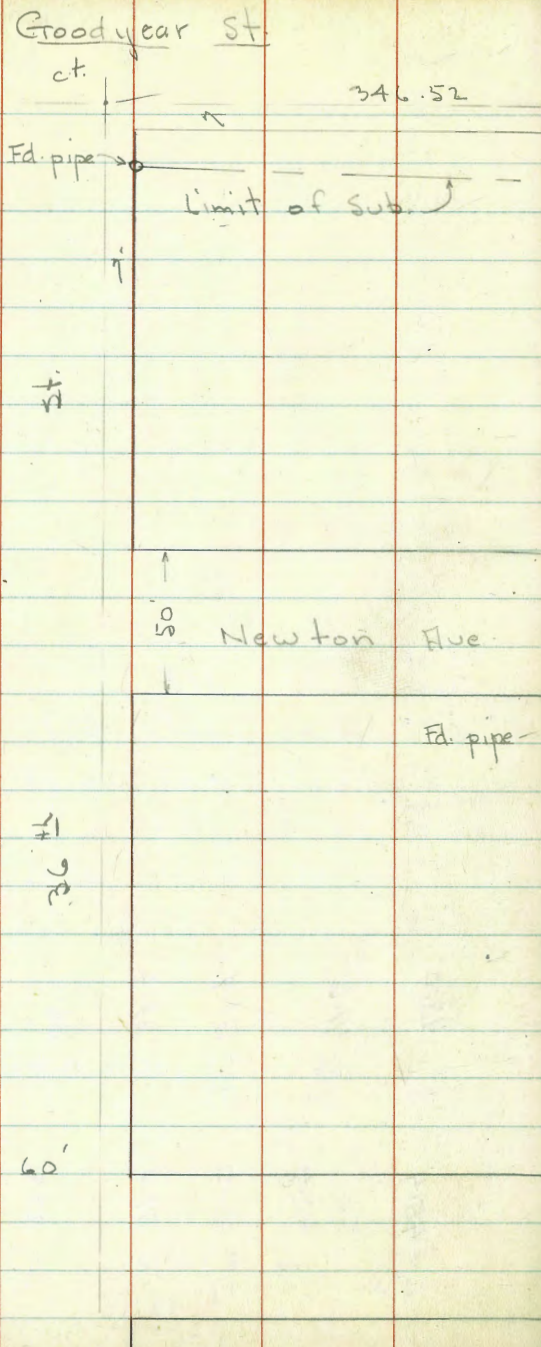 Goodyear St.
ct.
346.52
7
Fd. pipe
Limit of Sub.
7'
St.
50'
Newton Ave
Fd. pipe
36 th
60'